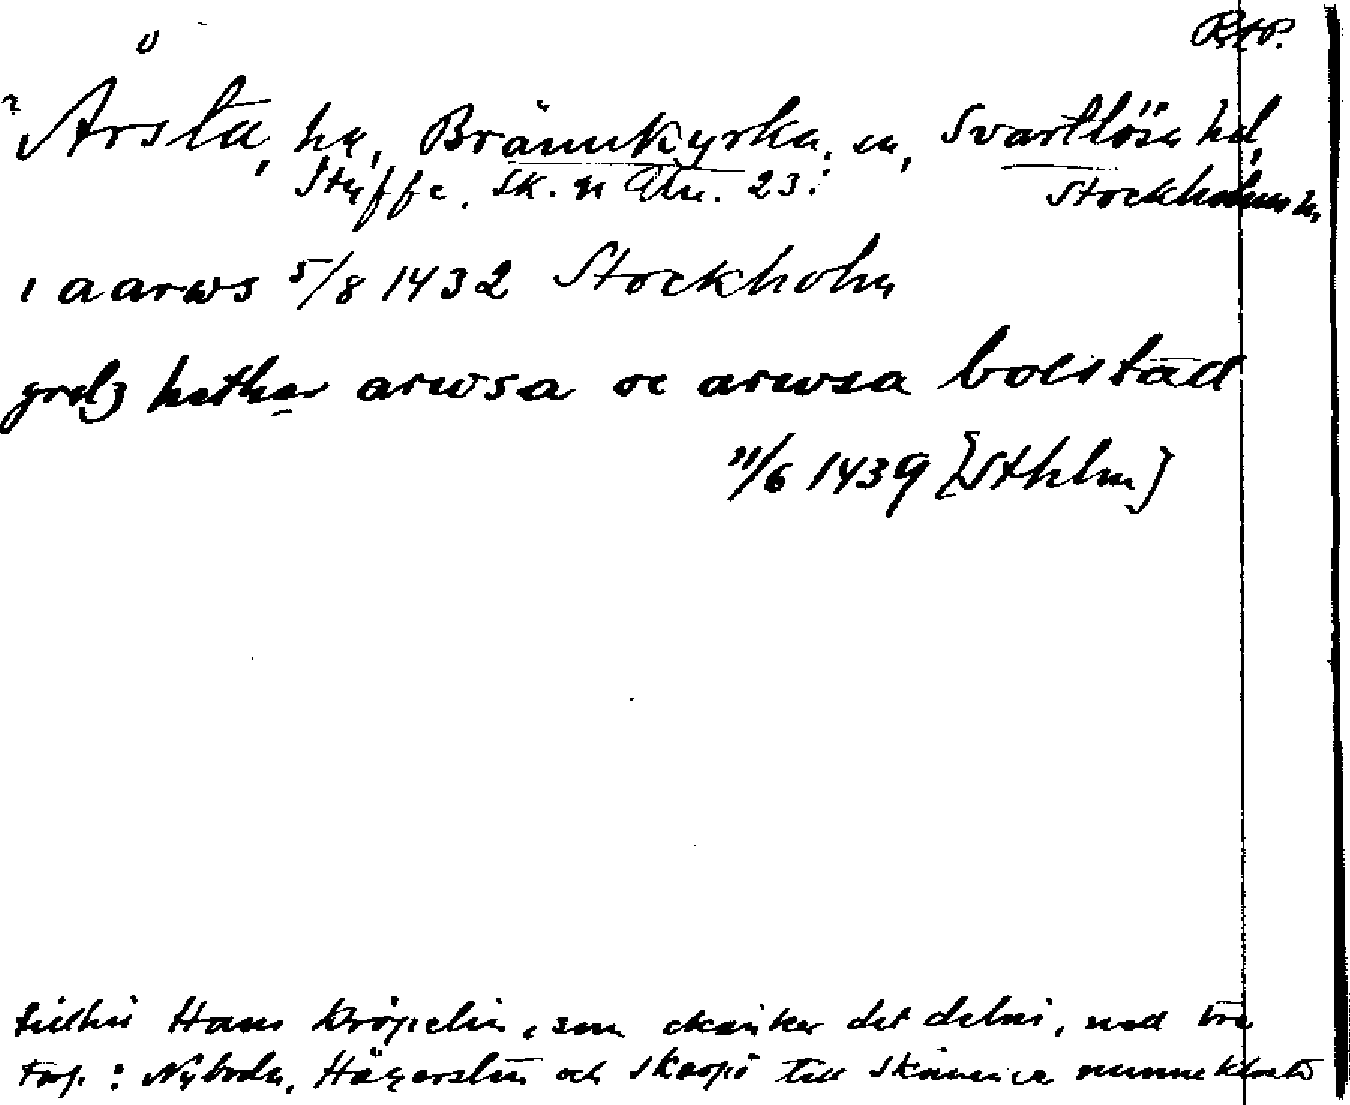 RAP.
Årsta, hg, Brännkyrka, sn, Svartlösa hd,
Styffe, Sk. u. Un. 23: Stockholms l.
i aarws 5/8 1432 Stockholm
godz hether arwsa oc arwsa bolstad
11/6 1439 [Sthlm]
tillhör Hans Kröpelin, som skänker det delvis, med tre
torp: Nyboda, Hägersten och Skarpö till Skänninge nunnekloster